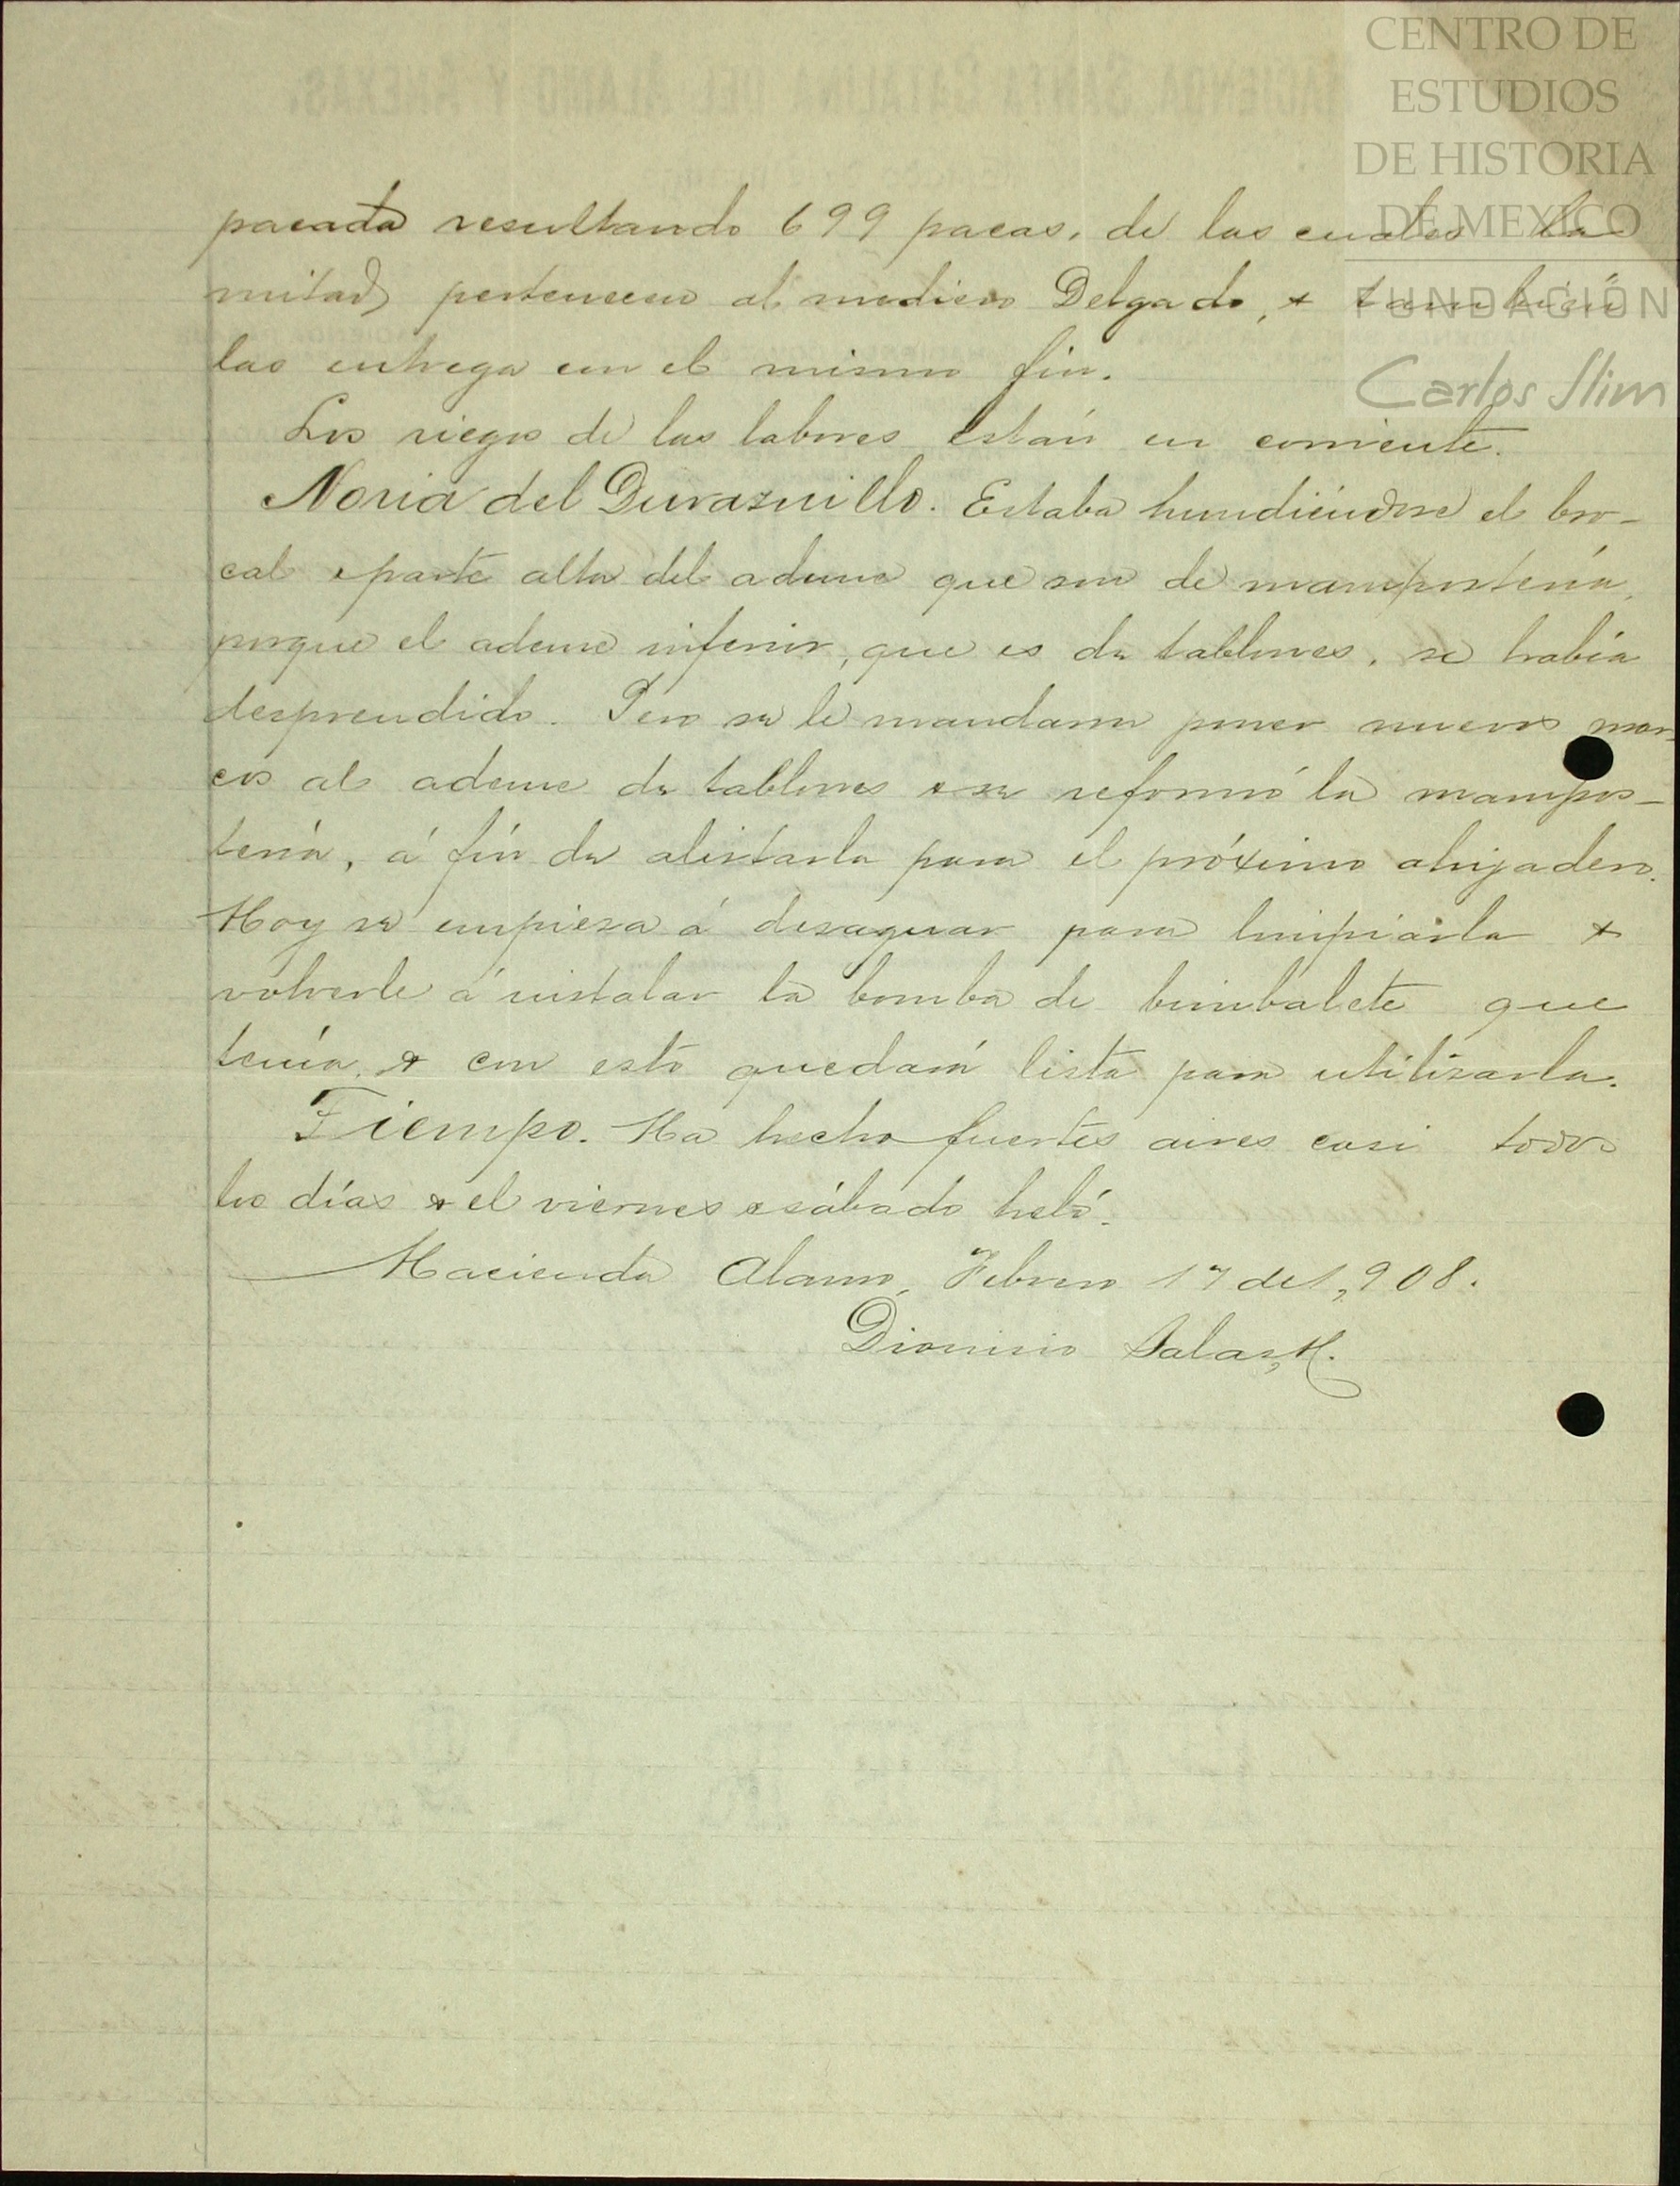 CENTRO DE
ESTUDIOS
DE HISTORIA
DE MEXICO
FUNDACIÓN
Carlos Slim
pacada resultando 699 pacas, de las cuales la
mitad pertenecen al mediero Delgado, & también
las entrega con el mismo fin.
Los riegos de las labores están en corriente.
Noria del Duraznillo. Estaba hundiéndose el bro-
cal & parte alta del ademe que son de mampostería,
porque el ademe inferior, que es de tablones, se había
desprendido. Pero se le mandaron poner nuevos mar-
cos al ademe de tablones & se reformó la mampos-
tería, á fín de alistarla para el próximo ahijadero.
Hoy se empieza á desaguar para limpiarla &
volverle á instalar la bomba de bimbalete que
tenía, & con esto quedará lista para utilizarla.
Tiempo. Ha hecho fuertes aires casi todos
los días & el viernes & sábado heló.
Hacienda Alamo, Febrero 17 de 1,908.
Dionisio Salas, H.